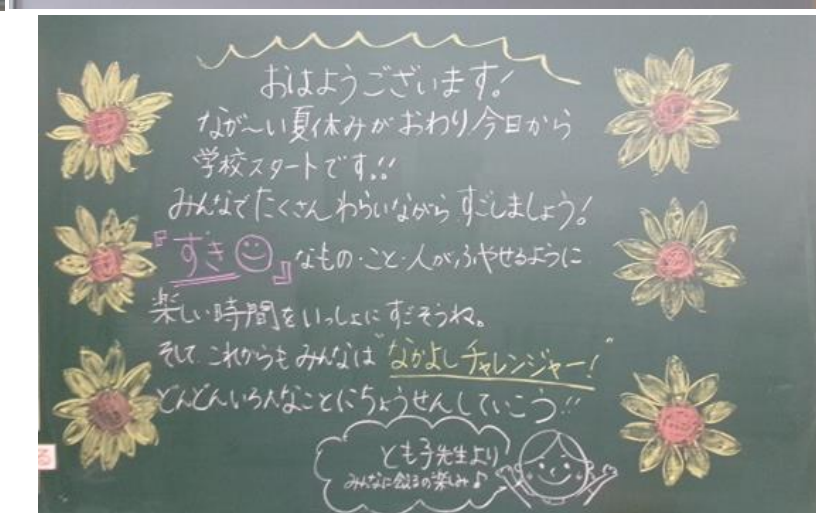 おはようございます!
なが〜い夏休みがおわり今日から
学校スタートです!!
みんなでたくさんわらいながらすごしましょう!
『すき』なもの・こと・人がふやせるように
楽しい時間をいっしょにすごそうね。
そして、これからもみんなは"なかよしチャレンジャー!"
どんどんいろんなことにちょうせんしていこう!!
とも子先生より
みんなに会えるの楽しみ♪
る